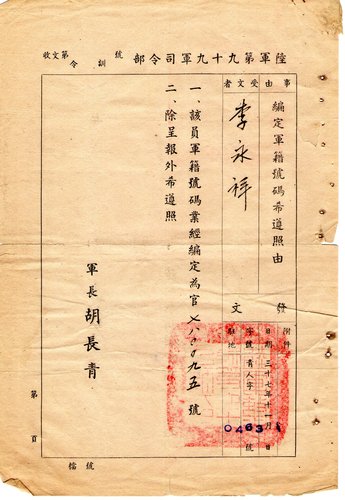 陸軍第九十九軍司令部訓令
號
收文第
事由
編定軍籍號碼希遵照由
受文者
李永祥
發文
附件
日期 三十七年十一月 日
字號 青人字 0463 號
駐地
一、該員軍籍號碼業經編定為官七八 九五號
二、除呈報外希遵照
軍長 胡長青
第 頁
檔號